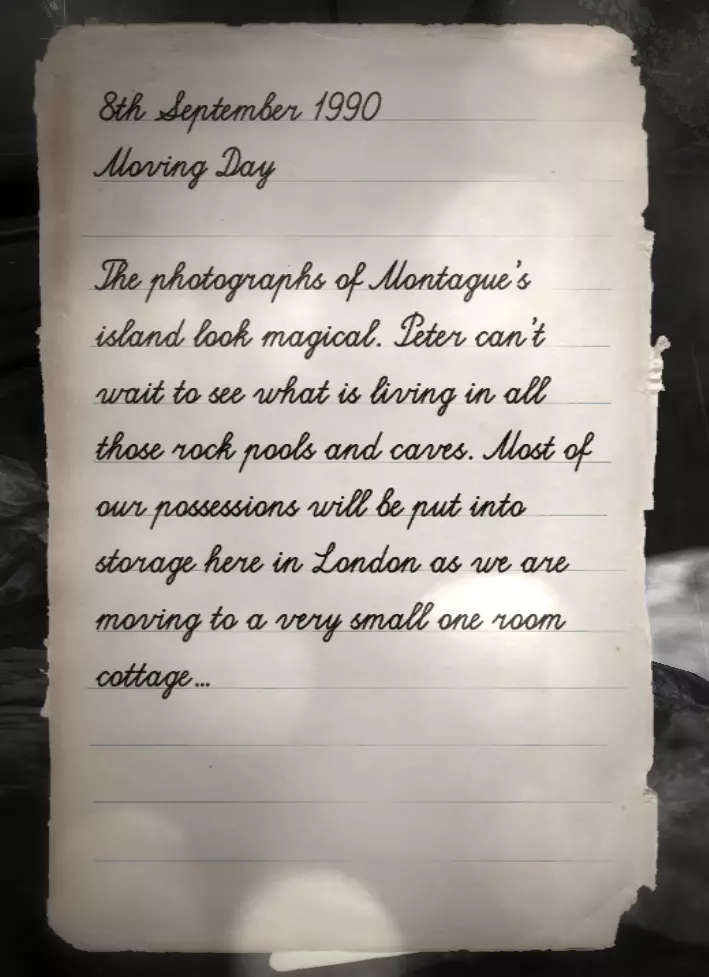 8th September 1990
Moving Day
The photographs of Montague's
island look magical. Peter can't
wait to see what is living in all
those rock pools and caves. Most of
our possessions will be put into
storage here in London as we are
moving to a very small one room
cottage...